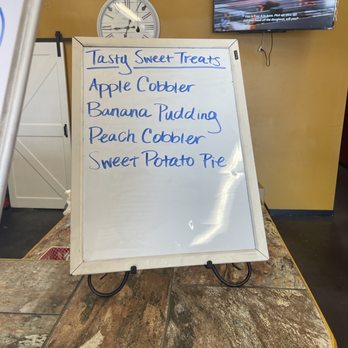 Tasty Sweet Treats
Apple Cobbler
Banana Pudding
Peach Cobbler
Sweet Potato Pie